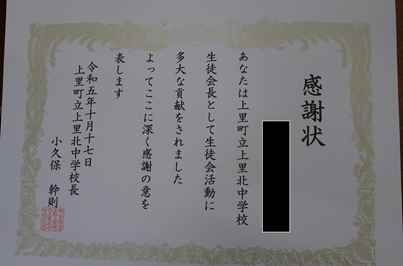 感謝状
あなたは上里町立上里北中学校
生徒会長として生徒会活動に
多大な貢献をされました
よってここに深く感謝の意を
表します
令和五年十月十七日
上里町立上里北中学校長
小久保 幹則